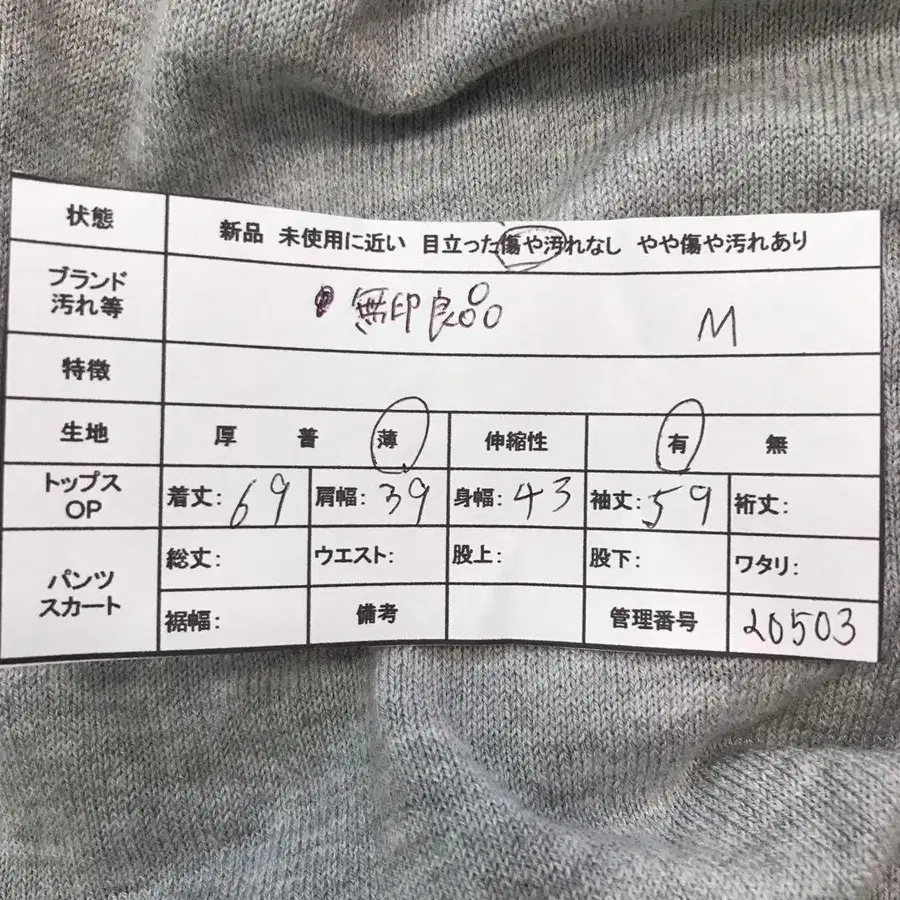 状態 新品 未使用に近い 目立った傷や汚れなし やや傷や汚れあり
ブランド
汚れ等 無印良品 M
特徴
生地 厚 普 薄 伸縮性 有 無
トップス
OP 着丈: 69 肩幅: 39 身幅: 43 袖丈: 59 裄丈:
パンツ
スカート
総丈: ウエスト: 股上: 股下: ワタリ:
裾幅: 備考 管理番号 20503